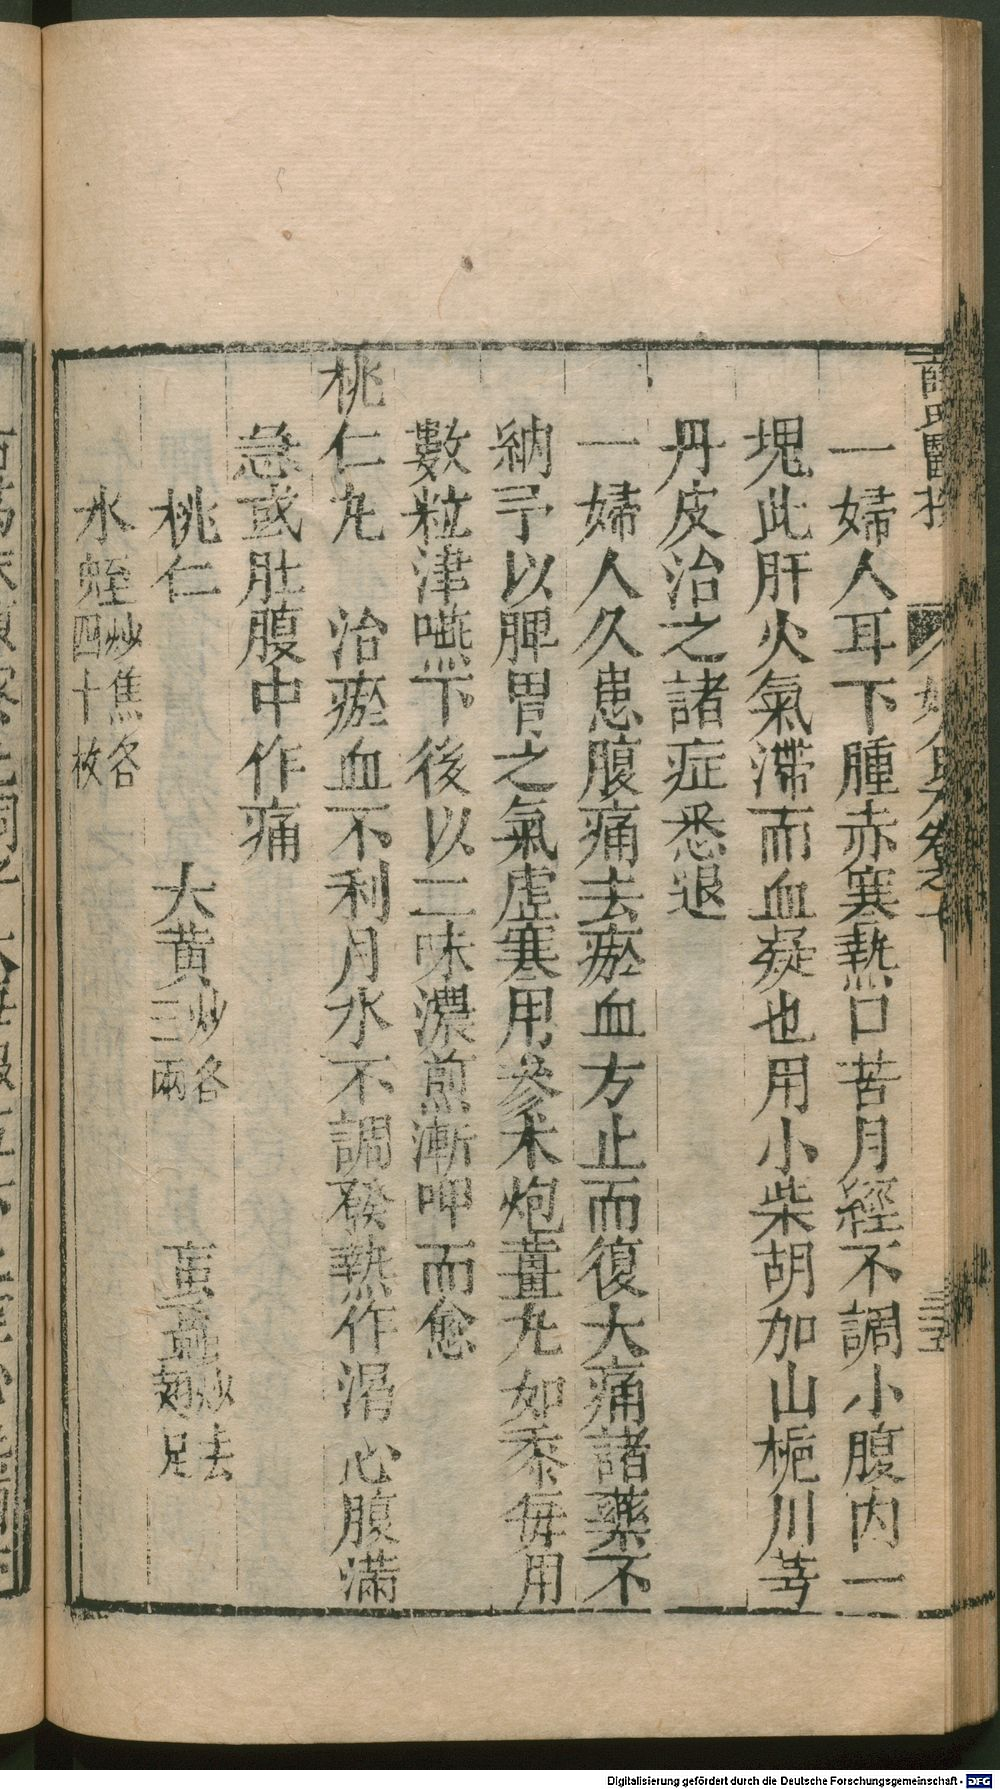 一婦人耳下腫赤寒熱口苦月經不調小腹内一
塊此肝火氣滯而血凝也用小柴胡加山梔川芎
丹皮治之諸症悉退
一婦人久患腹痛去瘀血方止而復大痛諸藥不
納予以脾胃之氣虛寒用參术炮薑丸如黍每用
數粒津嚥下後以二味濃煎漸呷而愈
桃仁丸 治瘀血不利月水不調發熱作渴心腹滿
急或肚腹中作痛
桃仁 大黄炒各三兩 䖟蟲炒去翅足
水蛭炒焦各四十枚
Digitalisierung gefördert durch die Deutsche Forschungsgemeinschaft - DFG